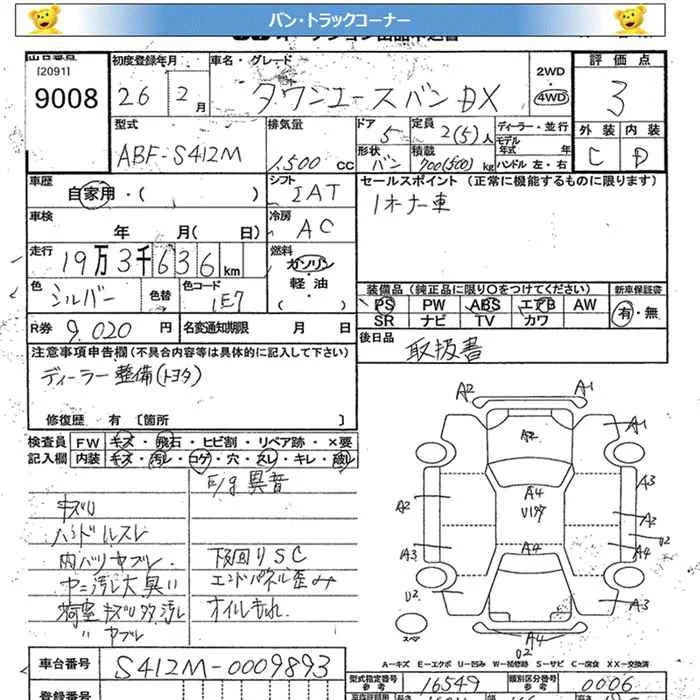 バン・トラックコーナー
[2091]
9008
初度登録年月
26 2月
車名・グレード
タウンエースバン DX
2WD
4WD
評価点
3
型式
ABF-S412M
排気量
1,500 CC
ドア
5
定員
2(5)人
ディーラー・並行
形状
バン
積載
900(500)kg
モデル年式 年
ハンドル 左・右
外装 内装
C D
車歴
自家用・( )
シフト
IAT
セールスポイント (正常に機能するものに限ります)
1オーナー車
車検
年 月( 日)
冷房
AC
走行
19万3千636km
燃料
ガソリン
軽油・
( )
色
シルバー
色替
色コード
1E7
装備品(純正品に限り○をつけてください)
PS PW ABS エアB AW
SR ナビ TV カワ
新車保証書
有・無
R券 9,020 円
名変通知期限 月 日
後日品
取扱書
注意事項申告欄(不具合内容等は具体的に記入して下さい)
ディーラー整備(トヨタ)
修復歴 有 〔箇所 〕
検査員 FW キズ・飛石・ヒビ割・リペア跡・×要
記入欄 内装 キズ・汚レ・コゲ・穴・スレ・キレ・破レ
E/g異音
キズリ
ハンドルスレ
内バリヤブレ.
下回りSC
ヤニ汚レ大 臭い
エンドパネル歪み
荷室キズ多汚レ
オイルもれ.
〃 ヤブレ
A2 A1
A2 A1
A2 A4 A3
U1押 A2
A3 A4 U2
A4
U2 A3
スペア
A4
U2
A=キズ E=エクボ U=凹み W=補修跡 S=サビ C=腐食 XX=交換済
車台番号
S412M-0009893
型式指定番号
参考
16549
類別区分番号
参考
0006
登録番号